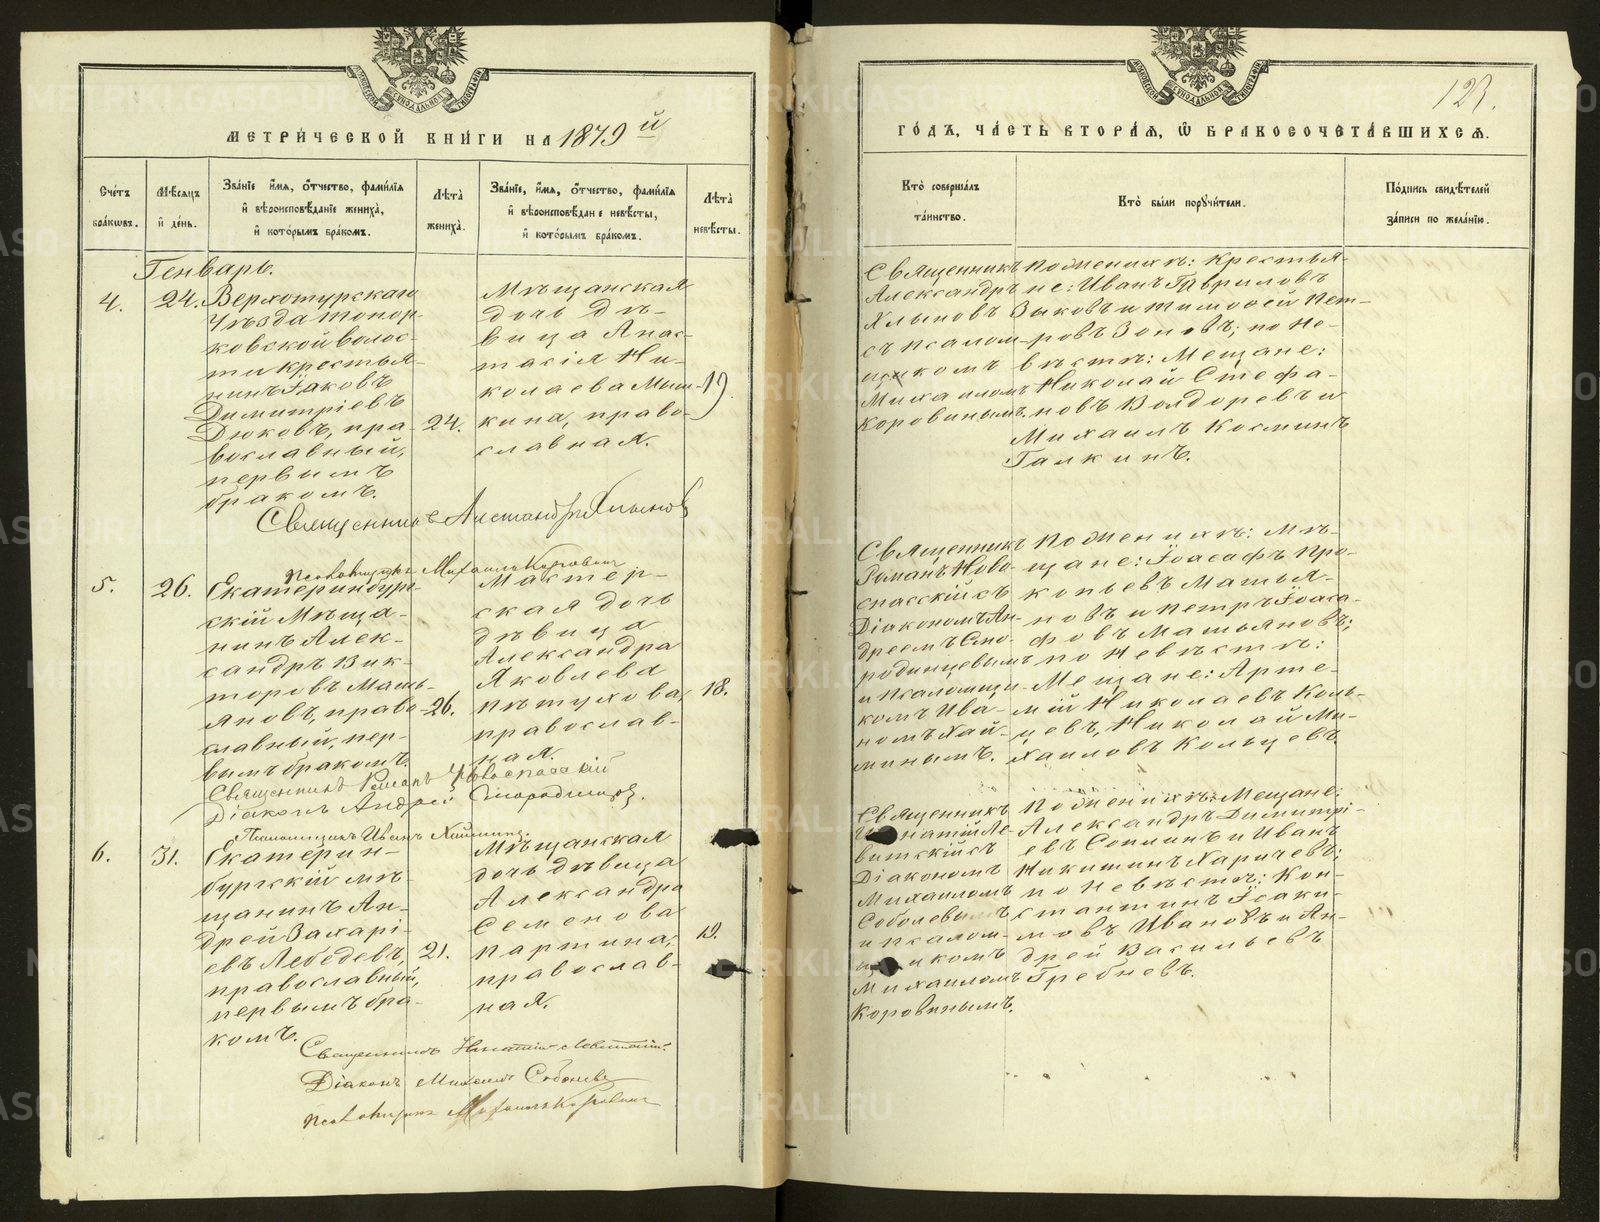 МЕТРИЧЕСКОЙ КНИГИ НА 1879й
Счетъ браковъ.
Мѣсяцъ и день.
Званіе имя, отчество, фамилія и вѣроисповѣданіе жениха, и которымъ бракомъ.
Лѣта жениха.
Званіе, имя, отчество, фамилія и вѣроисповѣданіе невѣсты, и которымъ бракомъ.
Лѣта невѣсты.
Генварь.
4.
24.
Верхотурскаго
Уѣзда Топор-
ковской волос-
ти крестья-
нинъ Іаковъ
Димитріевъ
Дюковъ, пра-
вославный,
первымъ
бракомъ.
24.
Мѣщанская
дочь дѣ-
вица Анас-
тасія Ни-
колаева Мыш-
кина, право-
славная.
19.
Священникъ Александръ Хлыновъ
Псаломщикъ Михаилъ Коровинъ
5.
26.
Екатеринбург-
скій Мѣща-
нинъ Алек-
сандръ Вик-
торовъ Мать-
яновъ, право-
славный, пер-
вымъ бракомъ.
26.
Мастер-
ская дочь
дѣвица
Александра
Яковлева
Пѣтухова,
православ-
ная.
18.
Священникъ Романъ Новоспасскій
Діаконъ Андрей Смородинцевъ.
Псаломщикъ Иванъ Хайминъ.
6.
31.
Екатерин-
бургскій мѣ-
щанинъ Ан-
дрей Захарі-
евъ Лебедевъ,
православный,
первымъ бра-
комъ.
21.
Мѣщанская
дочь дѣвица
Александра
Семенова
Партина,
православ-
ная.
19.
Священникъ Игнатій Левитскій.
Діаконъ Михаилъ Соболевъ
Псаломщикъ Михаилъ Коровинъ
123.
ГОДЪ, ЧАСТЬ ВТОРАЯ, Ѡ БРАКОСОЧЕТАВШИХСЯ.
Кто совершалъ таинство.
Кто были поручители.
Подпись свидѣтелей записи по желанію.
Священникъ
Александръ
Хлыновъ
съ псалом-
щикомъ
Михаиломъ
Коровинымъ.
По женихѣ: крестья-
не: Иванъ Гавриловъ
Зыковъ и Тимофей Пет-
ровъ Зоновъ; по не-
вѣстѣ: Мещане:
Николай Стефа-
новъ Волдоревъ и
Михаилъ Косминъ
Галкинъ.
Священникъ
Романъ Ново-
спасскій съ
Діакономъ Ан-
дреемъ Смо-
родинцевымъ
и Псаломщи-
комъ Ива-
номъ Хай-
минымъ.
По женихѣ: Мѣ-
щане: Іоасафъ Про-
копьевъ Матья-
новъ и Петръ Іоаса-
фовъ Матьяновъ;
по невѣстѣ:
Мещане: Арте-
мій Николаевъ Коль-
цевъ, Николай Ми-
хаиловъ Кольцевъ.
Священникъ
Игнатій Ле-
витскій съ
Діакономъ
Михаиломъ
Соболевымъ
и псалом-
щикомъ
Михаиломъ
Коровинымъ.
По женихѣ: Мещане:
Александръ Димитрі-
евъ Сопнинъ и Иванъ
Никитинъ Харичевъ;
по невѣстѣ: Кон-
стантинъ Исаки-
мовъ Ивановъ и Ан-
дрей Васильевъ
Гребневъ.
METRIKI.GASO-URAL.RU